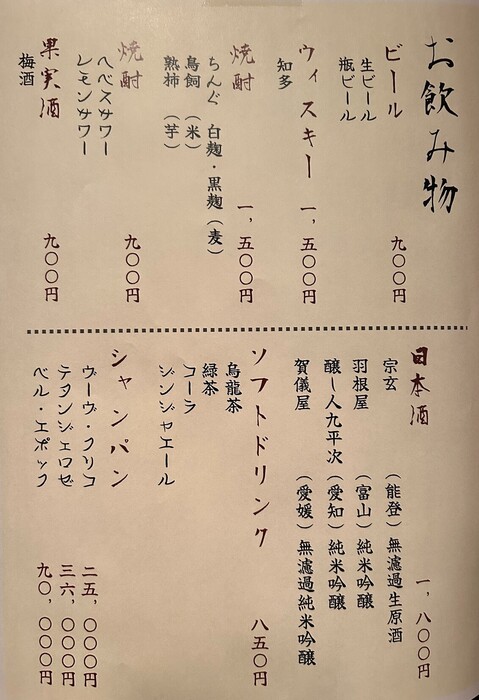 お飲み物
ビール 九〇〇円
生ビール
瓶ビール
ウィスキー 一,五〇〇円
知多
焼酎 一,五〇〇円
ちんぐ 白麹・黒麹(麦)
鳥飼 (米)
熟柿 (芋)
焼酎 九〇〇円
へべスサワー
レモンサワー
果実酒 九〇〇円
梅酒
日本酒 一,八〇〇円
宗玄 (能登)無濾過生原酒
羽根屋 (富山)純米吟醸
醸し人九平次 (愛知)純米吟醸
賀儀屋 (愛媛)無濾過純米吟醸
ソフトドリンク 八五〇円
烏龍茶
緑茶
コーラ
ジンジャエール
シャンパン
ヴーヴ・クリコ 二五,〇〇〇円
テタンジェロゼ 三六,〇〇〇円
ベル・エポック 九〇,〇〇〇円